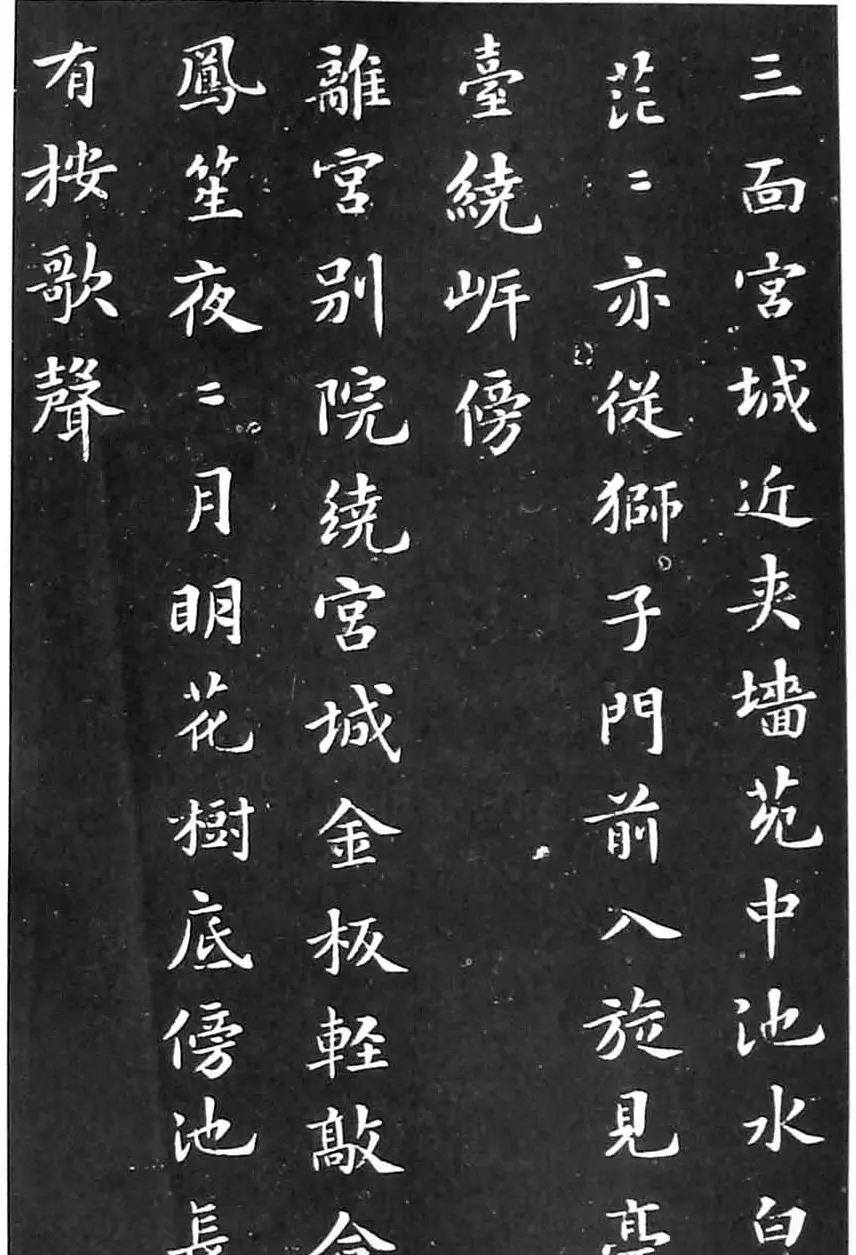 三面宮城近夾墻苑中池水白
茫〻亦從獅子門前入旋見亭
臺繞岍傍
離宮別院繞宮城金板軽敲合
鳳笙夜〻月明花樹底傍池長
有按歌聲